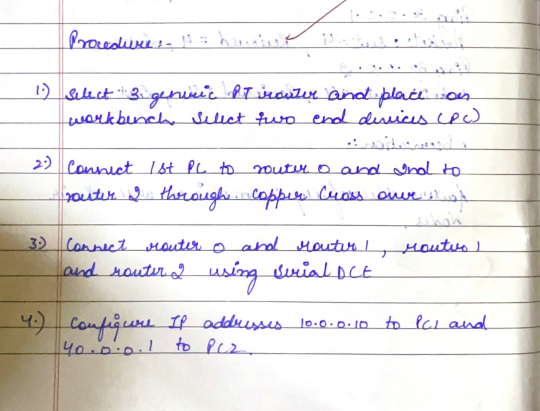 Procedure :-
1.) Select 3 generic PT router and place on
workbench. Select two end devices (PC)
2.) Connect 1st PC to router 0 and 2nd to
router 2 through Copper Cross over
3.) Connect router 0 and router 1, router 1
and router 2 using Serial DCE
4.) Configure IP addresses 10.0.0.10 to PC1 and
40.0.0.1 to PC2.